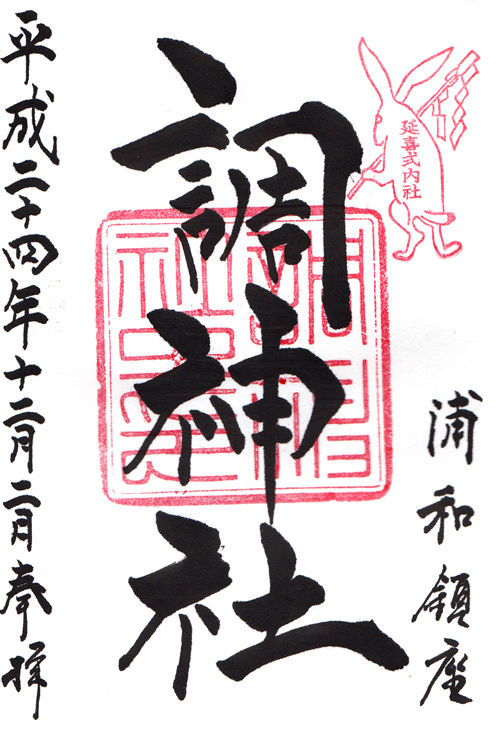 延喜式内社
浦和鎮座
調神社
平成二十四年十二月二日奉拝